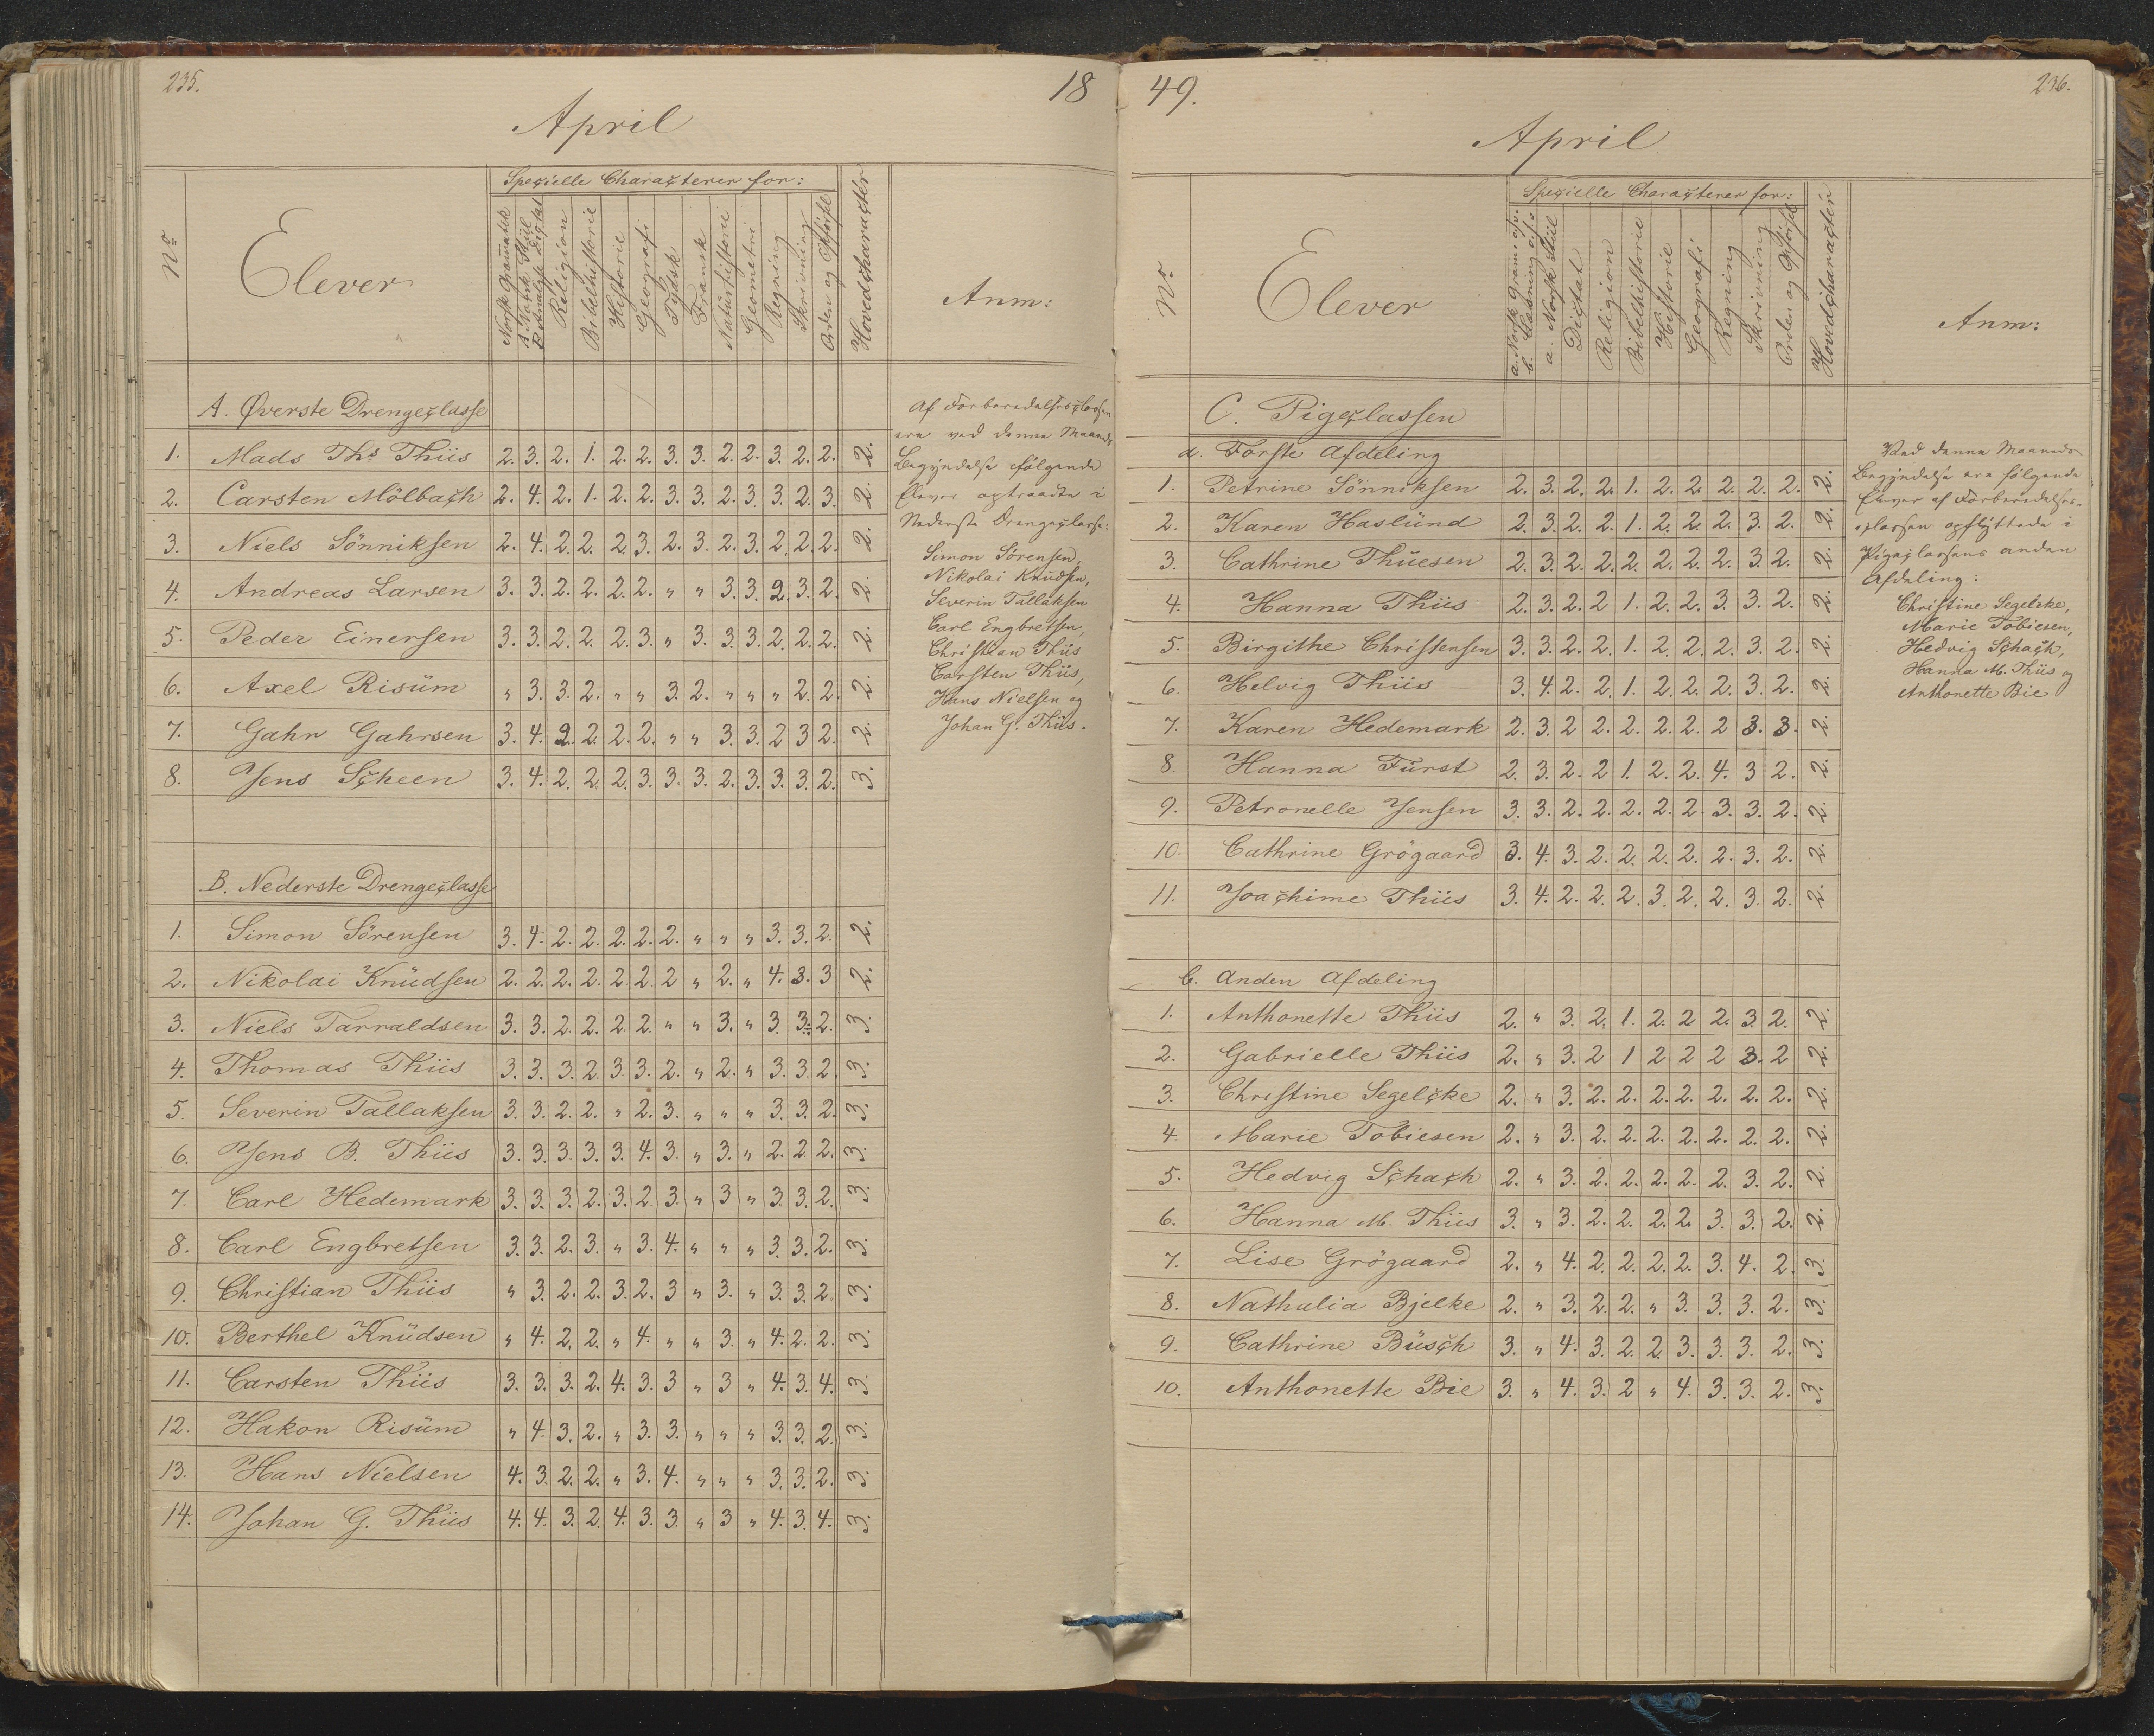 235.
18
April
Specielle Characterer for:
No
Elever
Norsk Gramatik
A. Norsk Stiil
B. Analyse Dictat
Religion
Bibelhistorie
Historie
Geografi
Tydsk
Fransk
Naturhistorie
Geometri
Regning
Skrivning
Orden og Opførsel
Hovedcharacter
Anm:
A. Øverste Drengeclasse
1. Mads Ths Thiis 2. 3. 2. 1. 2. 2. 3. 3. 2. 2. 3. 2. 2. 2.
2. Carsten Mölbach 2. 4. 2. 1. 2. 2. 3. 3. 2. 3 3. 2. 3. 2.
3. Niels Sönniksen 2. 4. 2. 2. 2. 3. 2. 3. 2. 3. 2. 2. 2. 2.
4. Andreas Larsen 3. 3. 2. 2. 2. 2. " " 3. 3. 2. 3. 2. 2.
5. Peder Einersen 3. 3. 2. 2. 2. 3. " 3. 3. 3. 2. 2. 2. 2.
6. Axel Risüm " 3. 3. 2. " " 3. 2. " " " 2. 2. 2.
7. Gahr Gahrsen 3. 4. 2. 2. 2. 2. " " 3. 3. 2 3 2. 2.
8. Jens Scheen 3. 4. 2. 2. 2. 3. 3. 3. 2. 3. 3. 3. 2. 3.
Af Forberedelsesclassen
ere ved denne Maaneds
Begyndelse følgende
Elever optraadte i
Nederste Drengeclasse:
Simon Sörensen,
Nikolai Knüdsen,
Severin Tallaksen
Carl Engbretsen,
Christian Thiis
Carsten Thiis,
Hans Nielsen og
Johan G. Thiis.
B. Nederste Drengeclasse
1. Simon Sörensen 3. 4. 2. 2. 2. 2. 2. " " " 3. 3. 2. 2.
2. Nikolai Knüdsen 2. 2. 2. 2. 2. 2. 2 " 2. " 4. 3. 3 2.
3. Niels Tarraldsen 3. 3. 2. 2. 2. 2. " " 3. " 3. 3. 2. 3.
4. Thomas Thiis 3. 3. 3. 2. 3. 3. 2. " 2. " 3. 3. 2. 3.
5. Severin Tallaksen 3. 3. 2. 2. " 2. 3. " " " 3. 3. 2. 3.
6. Jens B. Thiis 3. 3. 3. 3. 3. 4. 3. " 3. " 2. 2. 2. 3.
7. Carl Hedemark 3. 3. 3. 2. 3. 2. 3. " 3 " 3. 3. 2. 3.
8. Carl Engbretsen 3. 3. 2. 3. " 3. 4. " " " 3. 3. 2. 3.
9. Christian Thiis " 3. 2. 2. 3. 2. 3 " 3. " 3. 3. 2. 3.
10. Berthel Knüdsen " 4. 2. 2. " 4. " " 3 " 4. 2. 2. 3.
11. Carsten Thiis 3. 3. 3. 2. 4. 3. 3 " 3 " 4. 3. 4. 3.
12. Hakon Risüm " 4 3. 2. " 3. 3. " " " 3. 3. 2. 3.
13. Hans Nielsen 4. 3. 2. 2. " 3. 4. " " " 3. 3. 2. 3.
14. Johan G. Thiis 4. 4. 3. 2. 4. 3. 3. " 3 " 4. 3. 4. 3.
49.
236.
April
Specielle Characterer for:
No
Elever
a. Norsk Gram: afd.
b. Læsning afd.
a. Norsk Stiil
Dictat
Religion
Bibelhistorie
Historie
Geografi
Regning
Skrivning
Orden og Opførsel
Hovedcharacter
Anm:
C. Pigeclassen
a. Første Afdeling
1. Petrine Sönniksen 2. 3. 2. 2. 1. 2. 2. 2. 2. 2. 2.
2. Karen Haslünd 2. 3. 2. 2. 1. 2. 2. 2. 3. 2. 2.
3. Cathrine Thüesen 2. 3. 2. 2. 2. 2. 2. 2. 3. 2. 2.
4. Hanna Thiis 2. 3. 2. 2 1. 2. 2. 3. 3. 2. 2.
5. Birgithe Christensen 3. 3. 2. 2. 1. 2. 2. 2. 3. 2. 2.
6. Helvig Thiis 3. 4. 2. 2. 1. 2. 2. 2. 3. 2. 2.
7. Karen Hedemark 2. 3. 2 2. 2. 2. 2. 2 3. 3. 2.
8. Hanna Fürst 2. 3. 2. 2 1. 2. 2. 4. 3 2. 2.
9. Petronelle Jensen 3. 3. 2. 2. 2. 2. 2. 3. 3. 2. 2.
10. Cathrine Grögaard 3. 4. 3. 2. 2. 2. 2. 2. 3. 2. 2.
11. Joachime Thiis 3. 4. 2. 2. 2. 3. 2. 2. 3. 2. 2.
Ved denne Maaneds
Begyndelse ere følgende
Elever af Forberedelses-
classen opflyttede i
Pigeclassens anden
Afdeling:
Christine Segelcke,
Marie Tobiesen,
Hedvig Schach,
Hanna M. Thiis og
Anthonette Bie
b. Anden Afdeling
1. Anthonette Thiis 2. " 3. 2. 1. 2. 2 2. 3. 2. 2.
2. Gabrielle Thiis 2. " 3. 2 1 2 2 2 3. 2 2.
3. Christine Segelcke 2. " 3. 2. 2. 2. 2. 2. 2. 2. 2.
4. Marie Tobiesen 2. " 3. 2. 2. 2. 2. 2. 2. 2. 2.
5. Hedvig Schach 2. " 3. 2. 2. 2. 2. 2. 3. 2. 2.
6. Hanna M. Thiis 3. " 3. 2. 2. 2. 2. 3. 3. 2. 2.
7. Lise Grögaard 2. " 4. 2. 2. 2. 2. 3. 4. 2. 3.
8. Nathalia Bjelke 2. " 3. 2. 2. " 3. 3. 3. 2. 3.
9. Cathrine Büsch 3. " 4. 3. 2. 2. 3. 3. 3. 2. 3.
10. Anthonette Bie 3. " 4. 3. 2 " 4. 3. 3. 2. 3.